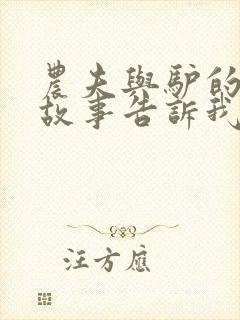 農夫與驢的
故事告訴我
汪方應